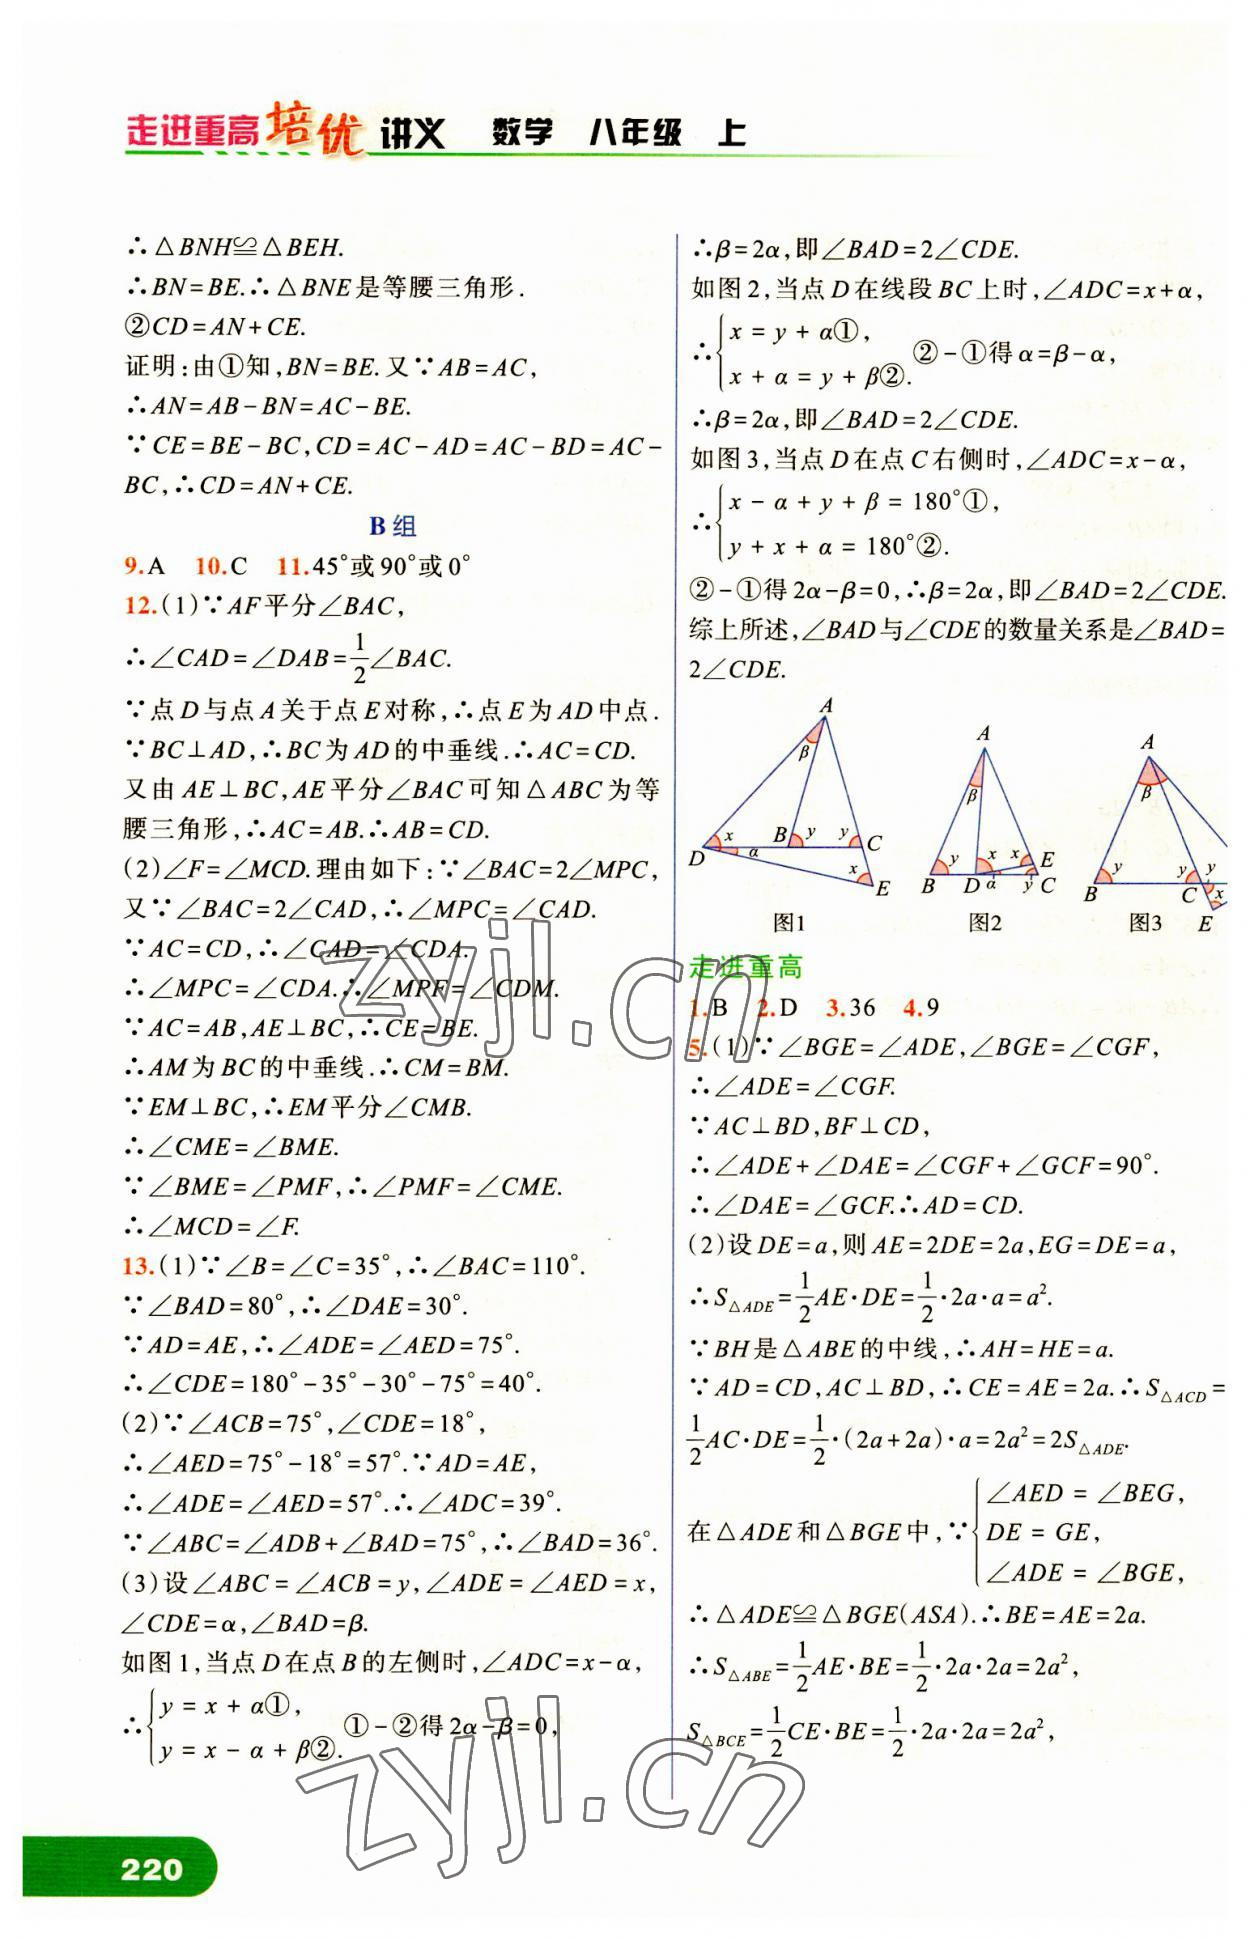 走进重高培优讲义 数学 八年级 上
∴△BNH≌△BEH.
∴BN=BE.∴△BNE是等腰三角形.
②CD=AN+CE.
证明:由①知,BN=BE.又∵AB=AC,
∴AN=AB-BN=AC-BE.
∵CE=BE-BC,CD=AC-AD=AC-BD=AC-
BC,∴CD=AN+CE.
B组
9.A 10.C 11.45°或90°或0°
12.(1)∵AF平分∠BAC,
∴∠CAD=∠DAB=1/2∠BAC.
∵点D与点A关于点E对称,∴点E为AD中点.
∵BC⊥AD,∴BC为AD的中垂线.∴AC=CD.
又由AE⊥BC,AE平分∠BAC可知△ABC为等
腰三角形,∴AC=AB.∴AB=CD.
(2)∠F=∠MCD.理由如下:∵∠BAC=2∠MPC,
又∵∠BAC=2∠CAD,∴∠MPC=∠CAD.
∵AC=CD,∴∠CAD=∠CDA.
∴∠MPC=∠CDA.∴∠MPF=∠CDM.
∵AC=AB,AE⊥BC,∴CE=BE.
∴AM为BC的中垂线.∴CM=BM.
∵EM⊥BC,∴EM平分∠CMB.
∴∠CME=∠BME.
∵∠BME=∠PMF,∴∠PMF=∠CME.
∴∠MCD=∠F.
13.(1)∵∠B=∠C=35°,∴∠BAC=110°.
∵∠BAD=80°,∴∠DAE=30°.
∵AD=AE,∴∠ADE=∠AED=75°.
∴∠CDE=180°-35°-30°-75°=40°.
(2)∵∠ACB=75°,∠CDE=18°,
∴∠AED=75°-18°=57°.∵AD=AE,
∴∠ADE=∠AED=57°.∴∠ADC=39°.
∵∠ABC=∠ADB+∠BAD=75°,∴∠BAD=36°.
(3)设∠ABC=∠ACB=y,∠ADE=∠AED=x,
∠CDE=α,∠BAD=β.
如图1,当点D在点B的左侧时,∠ADC=x-α,
∴{y=x+α①,
y=x-α+β②. ①-②得2α-β=0,
∴β=2α,即∠BAD=2∠CDE.
如图2,当点D在线段BC上时,∠ADC=x+α,
∴{x=y+α①,
x+α=y+β②. ②-①得α=β-α,
∴β=2α,即∠BAD=2∠CDE.
如图3,当点D在点C右侧时,∠ADC=x-α,
∴{x-α+y+β=180°①,
y+x+α=180°②.
②-①得2α-β=0,∴β=2α,即∠BAD=2∠CDE.
综上所述,∠BAD与∠CDE的数量关系是∠BAD=
2∠CDE.
A β x B y y C D α x E
A β y x x E B D α y C
A β y y B C x E
图1 图2 图3
走进重高
1.B 2.D 3.36 4.9
5.(1)∵∠BGE=∠ADE,∠BGE=∠CGF,
∴∠ADE=∠CGF.
∵AC⊥BD,BF⊥CD,
∴∠ADE+∠DAE=∠CGF+∠GCF=90°.
∴∠DAE=∠GCF.∴AD=CD.
(2)设DE=a,则AE=2DE=2a,EG=DE=a,
∴S△ADE=1/2AE·DE=1/2·2a·a=a².
∵BH是△ABE的中线,∴AH=HE=a.
∵AD=CD,AC⊥BD,∴CE=AE=2a.∴S△ACD=
1/2AC·DE=1/2·(2a+2a)·a=2a²=2S△ADE.
在△ADE和△BGE中,∵{∠AED=∠BEG,
DE=GE,
∠ADE=∠BGE,
∴△ADE≌△BGE(ASA).∴BE=AE=2a.
∴S△ABE=1/2AE·BE=1/2·2a·2a=2a²,
S△BCE=1/2CE·BE=1/2·2a·2a=2a²,
zyjl.cn
zyjl.cn
220